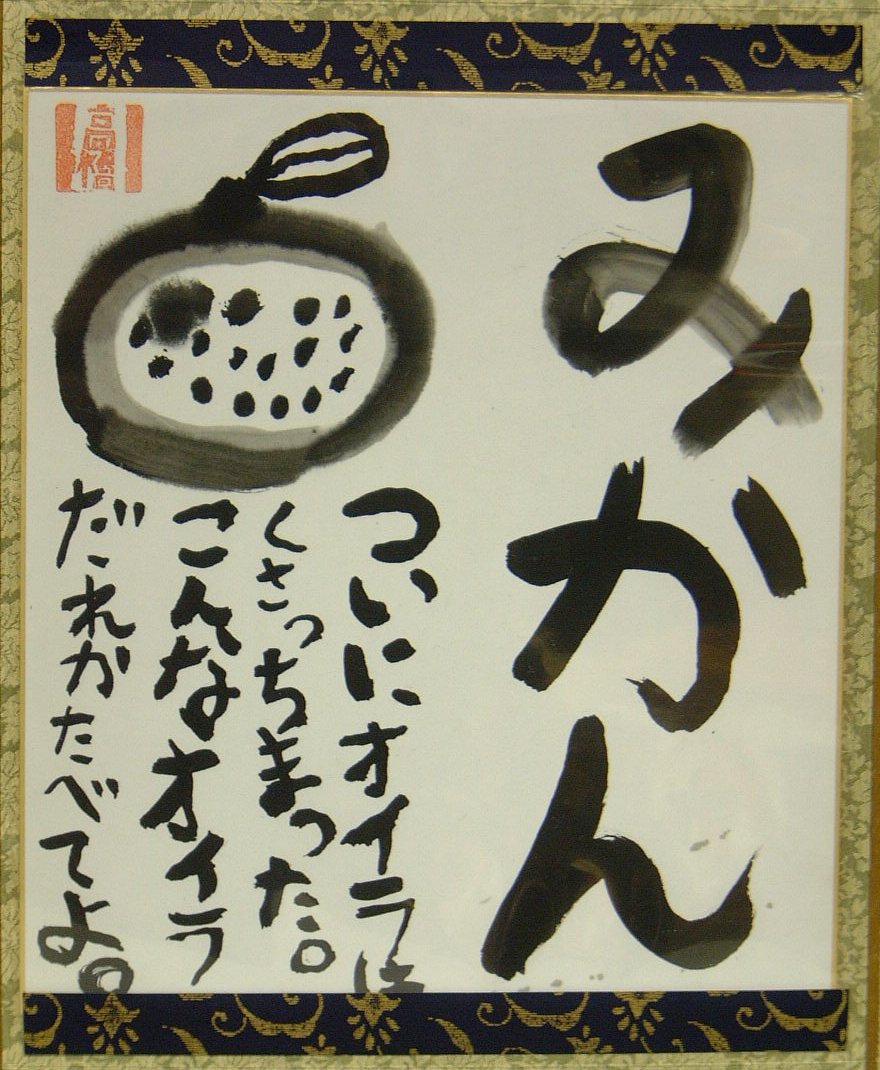 みかん
ついにオイラは
くさっちまった。
こんなオイラ
だれかたべてよ。
高橋